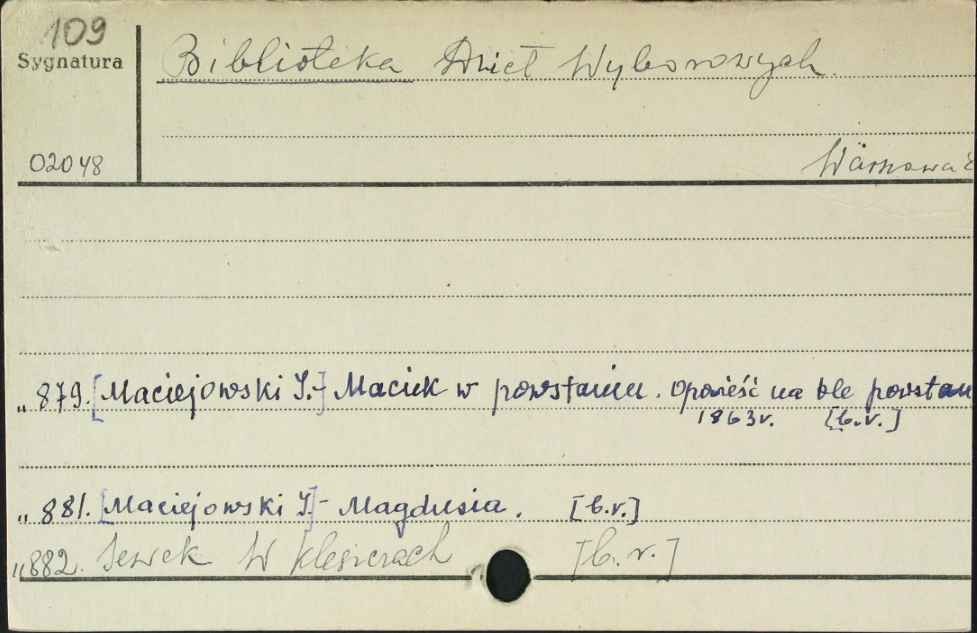 109
Sygnatura
Biblioteka Dzieł Wyborowych.
02048
Warszawa
„ 879. [Maciejowski I.-] Maciek w powstaniu. Opowieść na tle powstan
1863r. [b.r.]
„ 881. [Maciejowski I]- Magdusia. [b.r.]
„ 882. Sewek W kleszczach [b.r.]